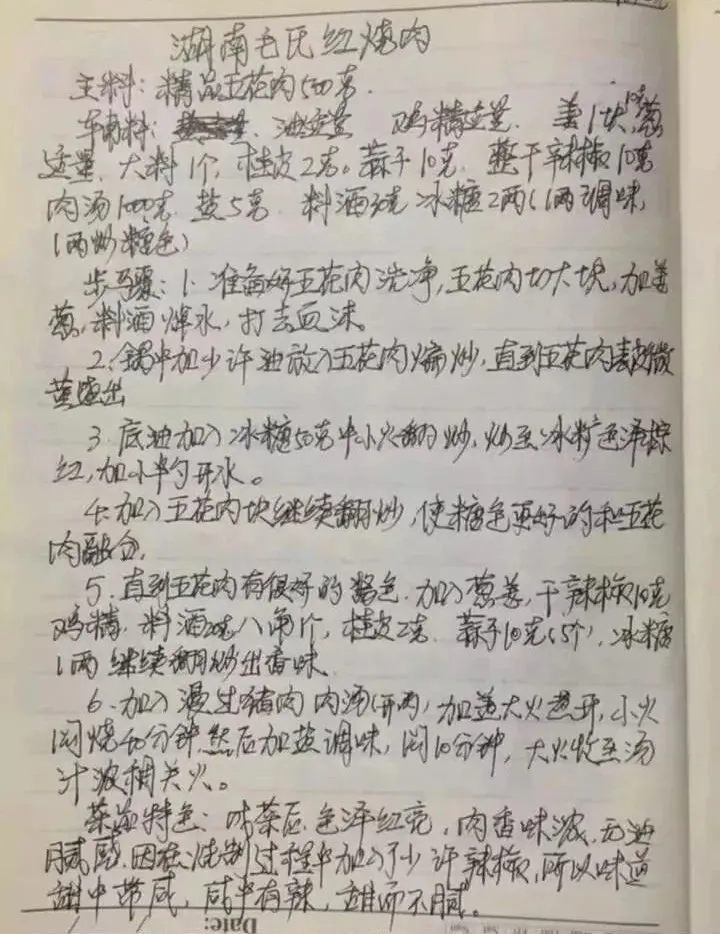 湖南毛氏红烧肉
主料：精品五花肉500克.
辅料： 油适量 鸡精适量. 姜1块 10克 葱
适量. 大料1个, 桂皮2克。蒜子10克. 整干辣椒10克
肉汤1000克. 盐5克. 料酒 克 冰糖2两(1两调味,
1两炒糖色)
步骤：1. 准备好五花肉洗净,五花肉切大块,加姜
葱,料酒焯水,打去血沫.
2. 锅中加少许油放入五花肉煸炒,直到五花肉表皮微
黄盛出
3. 底油加入冰糖50克中小火翻炒,炒至冰糖色泽棕
红,加小半勺开水。
4. 加入五花肉块继续翻炒,使糖色更好的和五花
肉融合.
5. 直到五花肉有很好的 色.加入葱姜,干辣椒10克
鸡精.料酒20克八角1个,桂皮2克.蒜子10克(5个),冰糖
1两继续翻炒出香味
6. 加入漫过猪肉肉汤(开 ),加盖大火煮开,小火
闷烧40分钟.然后加盐调味,闷10分钟,大火收至汤
汁浓稠关火。
菜品特色： 此菜 色泽红亮,肉香味浓.无油
腻感.因在烧制过程中加入了少许辣椒,所以味道
甜中带咸,咸中有辣,甜而不腻。
Date: